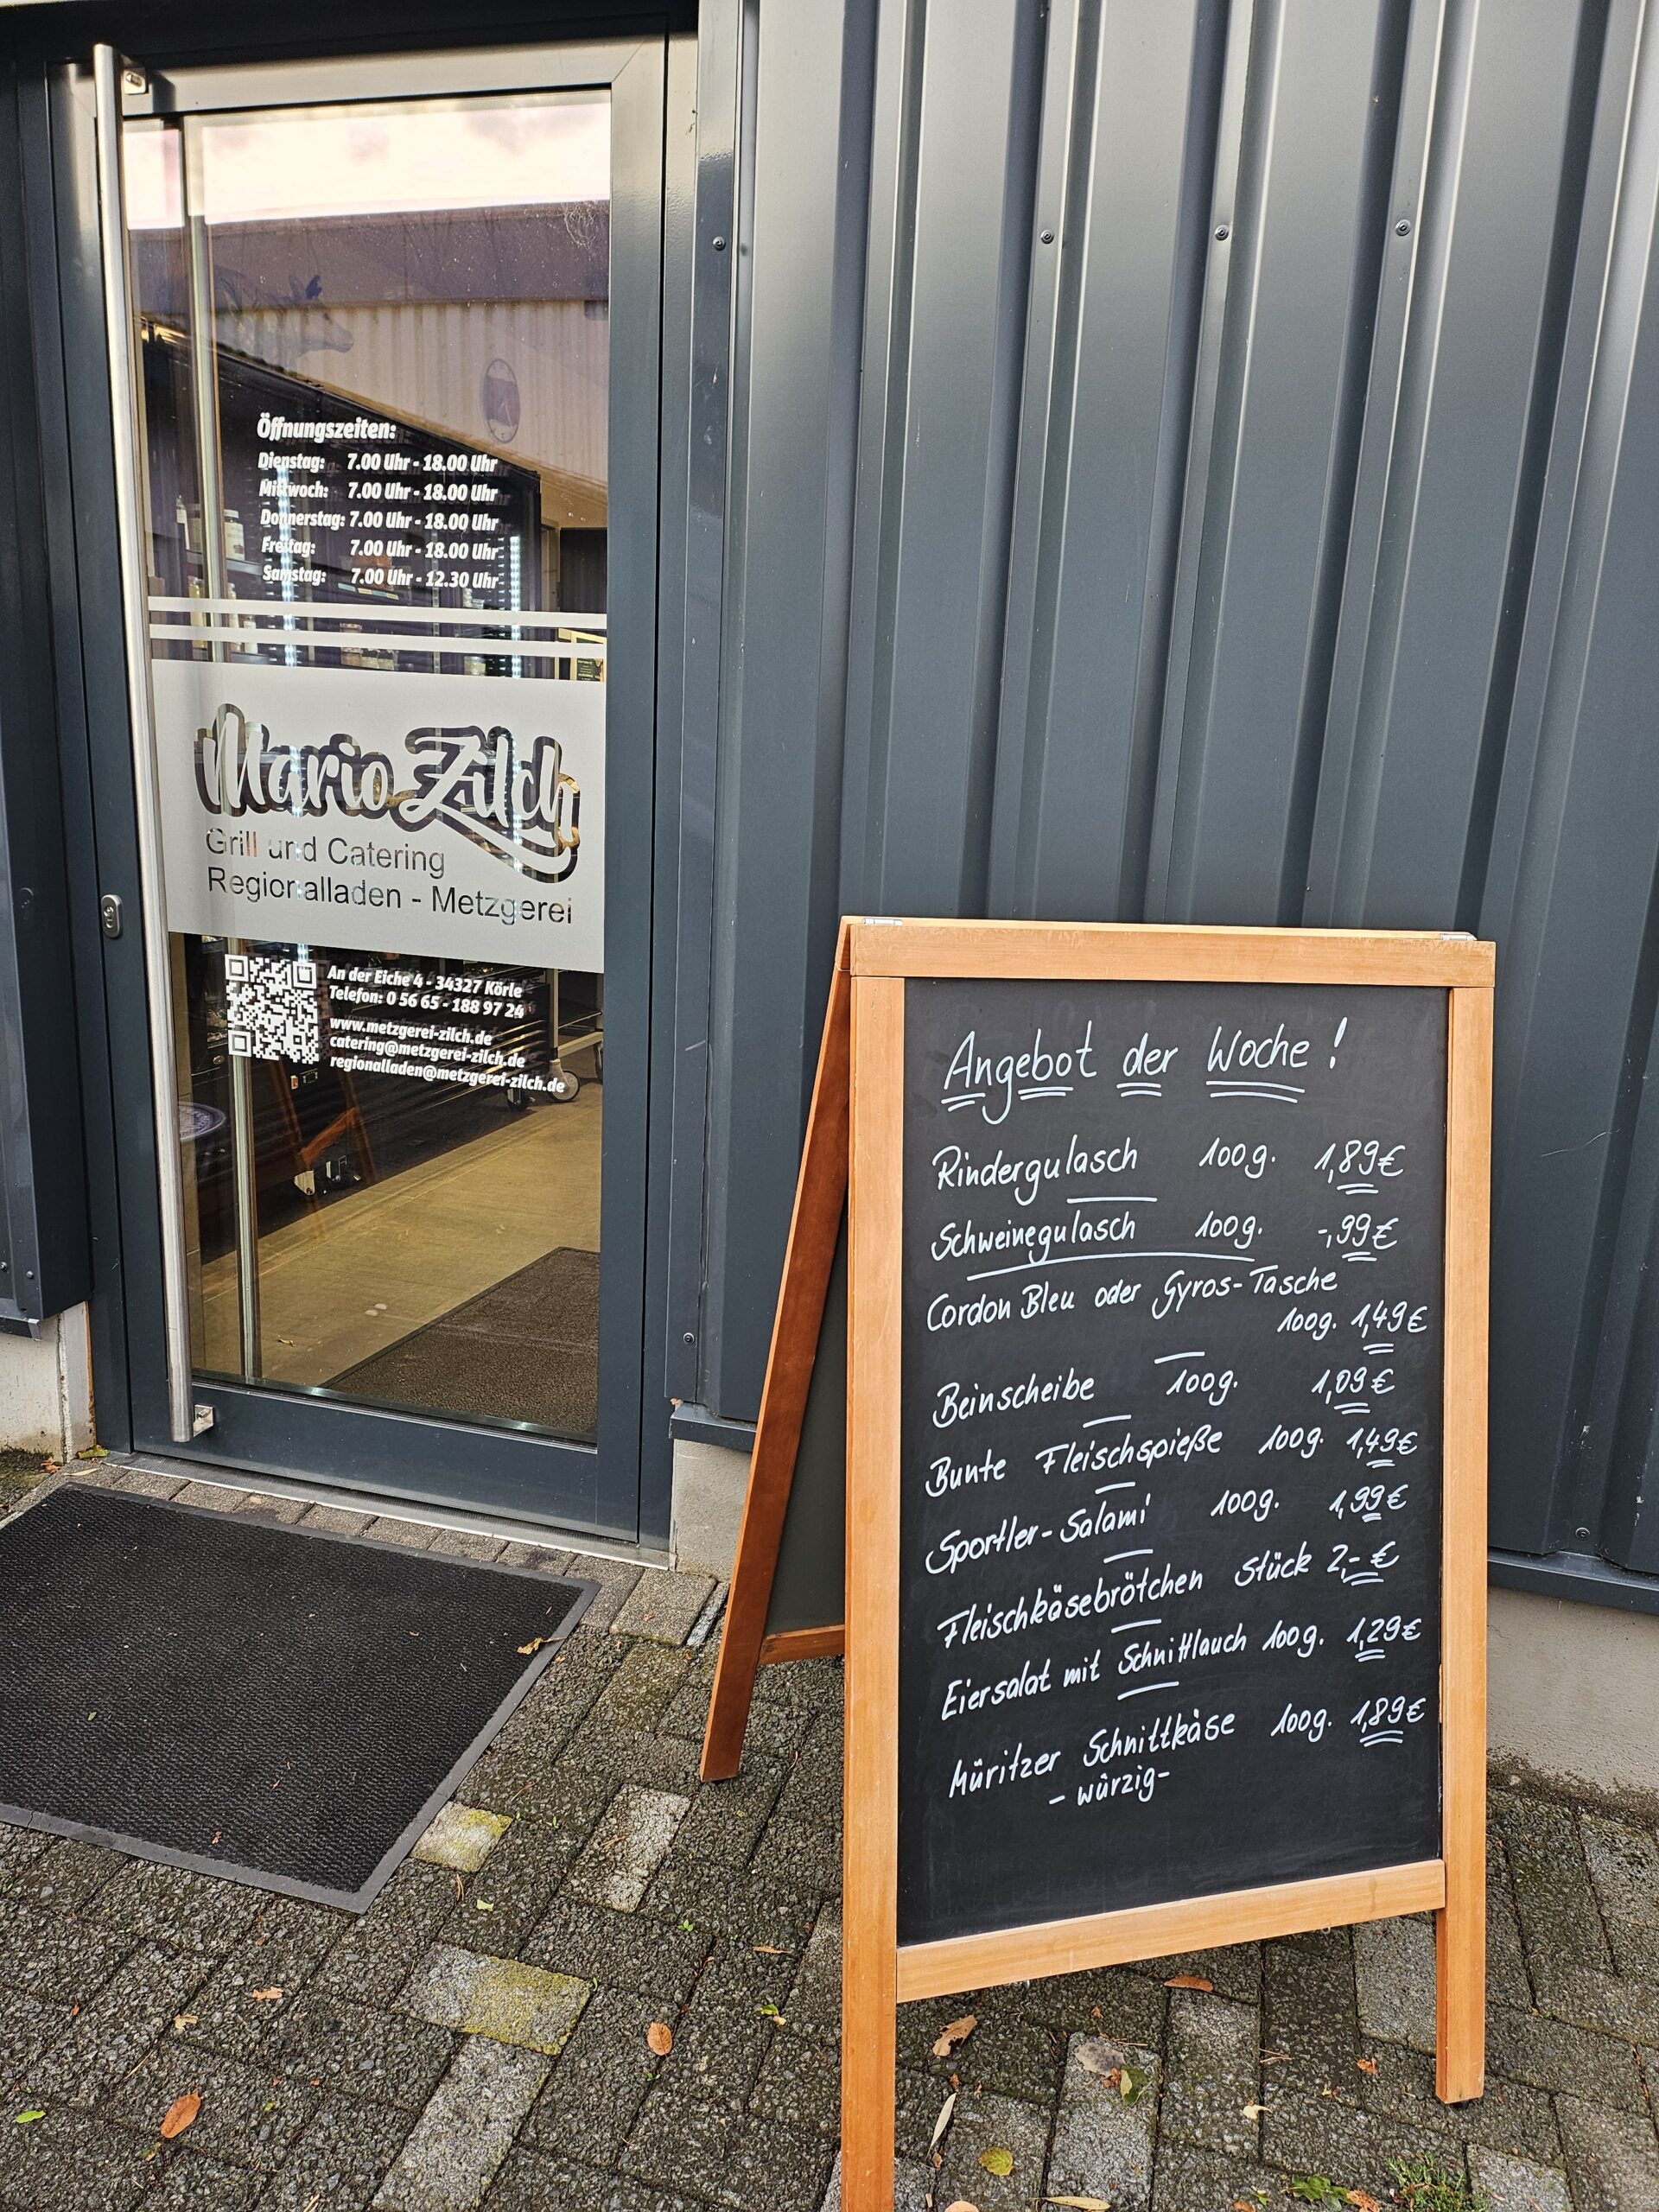 Öffnungszeiten:
Dienstag: 7.00 Uhr - 18.00 Uhr
Mittwoch: 7.00 Uhr - 18.00 Uhr
Donnerstag: 7.00 Uhr - 18.00 Uhr
Freitag: 7.00 Uhr - 18.00 Uhr
Samstag: 7.00 Uhr - 12.30 Uhr
Mario Zilch
Grill und Catering
Regionalladen - Metzgerei
An der Eiche 4 - 34327 Körle
Telefon: 0 56 65 - 188 97 24
www.metzgerei-zilch.de
catering@metzgerei-zilch.de
regionalladen@metzgerei-zilch.de
Angebot der Woche !
Rindergulasch 100g. 1,89€
Schweinegulasch 100g. -,99€
Cordon Bleu oder Gyros-Tasche
100g. 1,49€
Beinscheibe 100g. 1,09€
Bunte Fleischspieße 100g. 1,49€
Sportler-Salami 100g. 1,99€
Fleischkäsebrötchen Stück 2,- €
Eiersalat mit Schnittlauch 100g. 1,29€
Müritzer Schnittkäse 100g. 1,89€
- würzig-